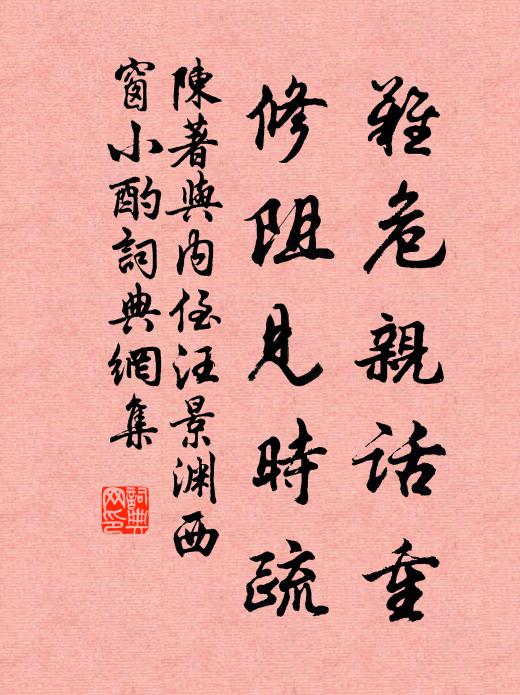 難危親話重
修阻見時疏
陳著與內侄汪景淵西
窗小酌詞典網集
詞典
网印